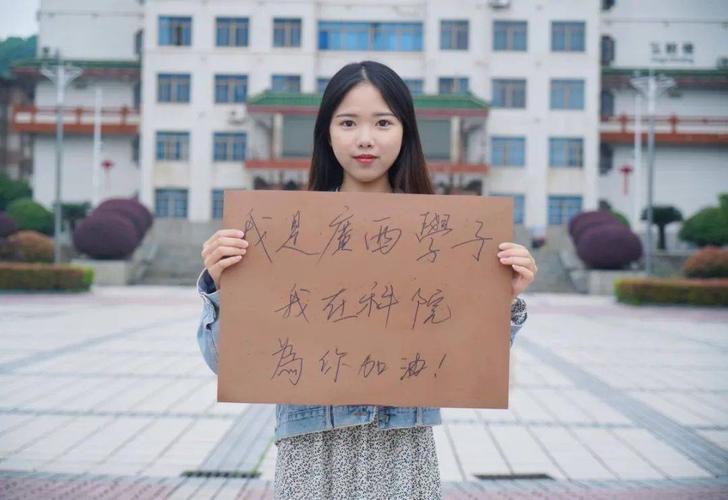 我是廣西學子
我在科院
為你加油!